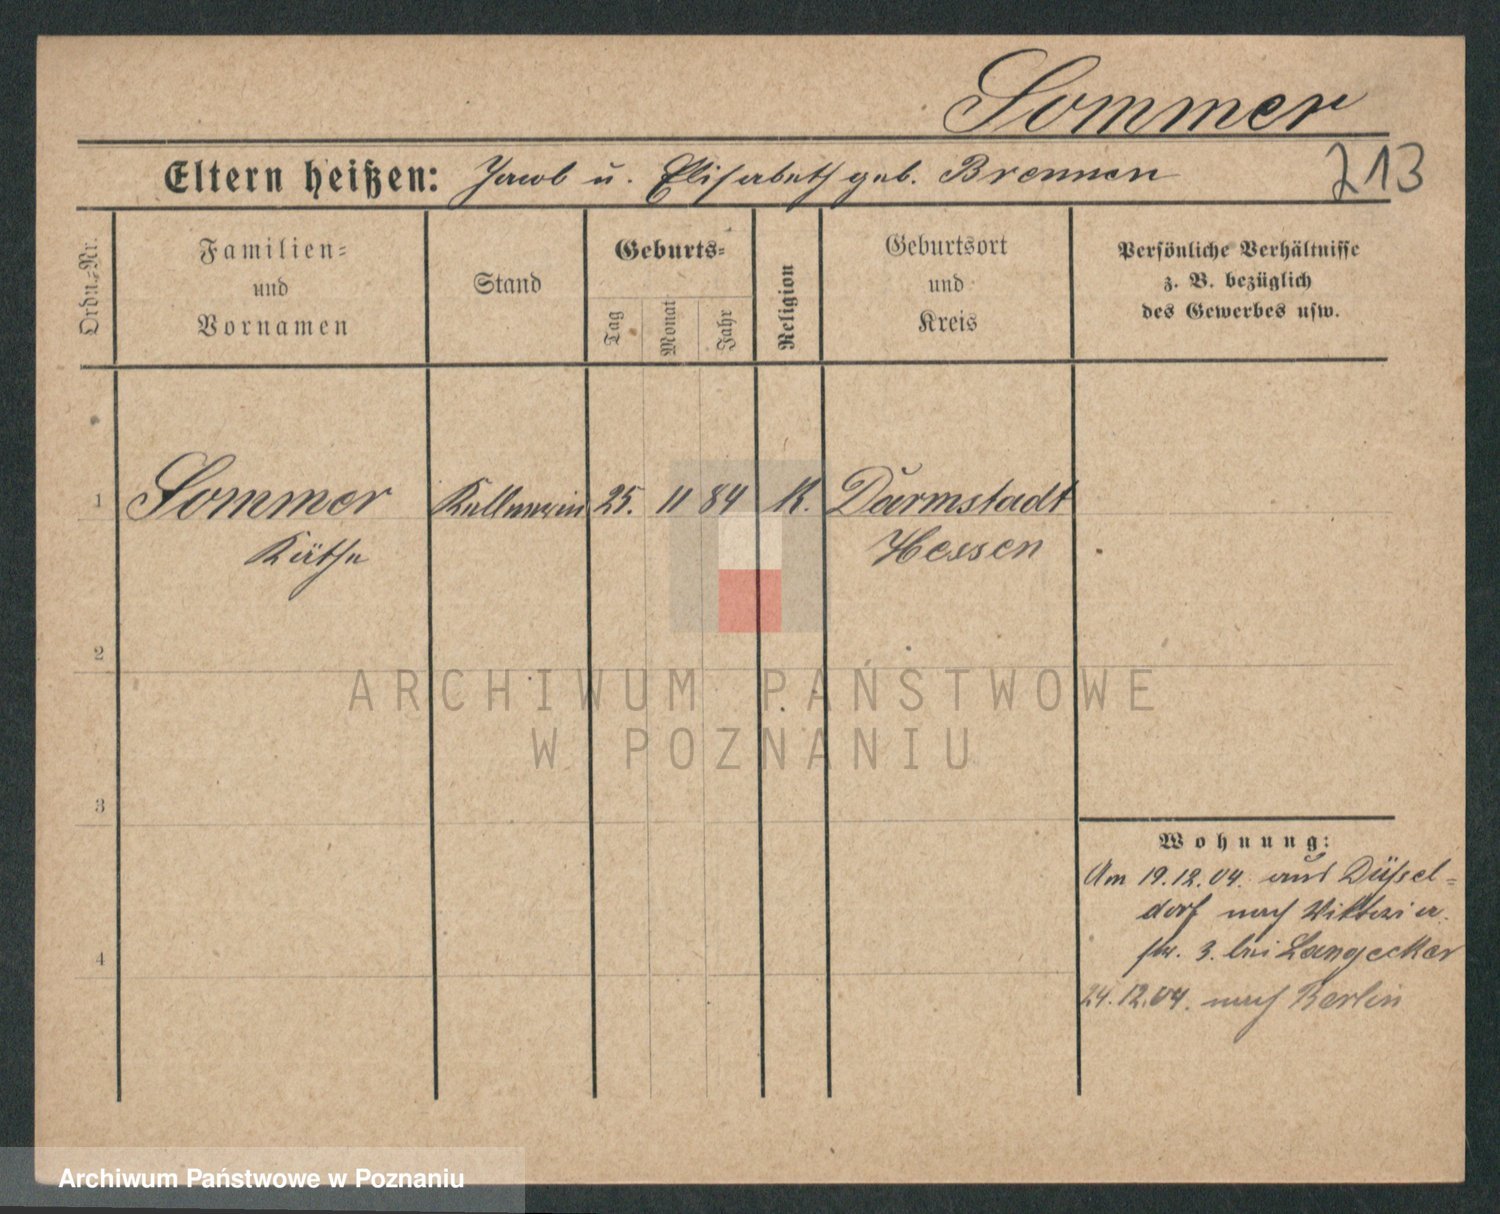 Sommer
Eltern heißen: Jacob u. Elisabeth geb. Brennen
213
Ordn.-Nr.
Familien-
und
Vornamen
Stand
Geburts-
Tag
Monat
Jahr
Religion
Geburtsort
und
Kreis
Persönliche Verhältnisse
z. B. bezüglich
des Gewerbes usw.
1
Sommer Kellnerin 25. 11 84 K. Darmstadt
Käthe Hessen
2
3
4
Wohnung:
Am 19.12.04. aus Düssel-
dorf nach Viktoria-
str. 3. bei Langecker
24.12.04. nach Berlin
ARCHIWUM PAŃSTWOWE
W POZNANIU
Archiwum Państwowe w Poznaniu